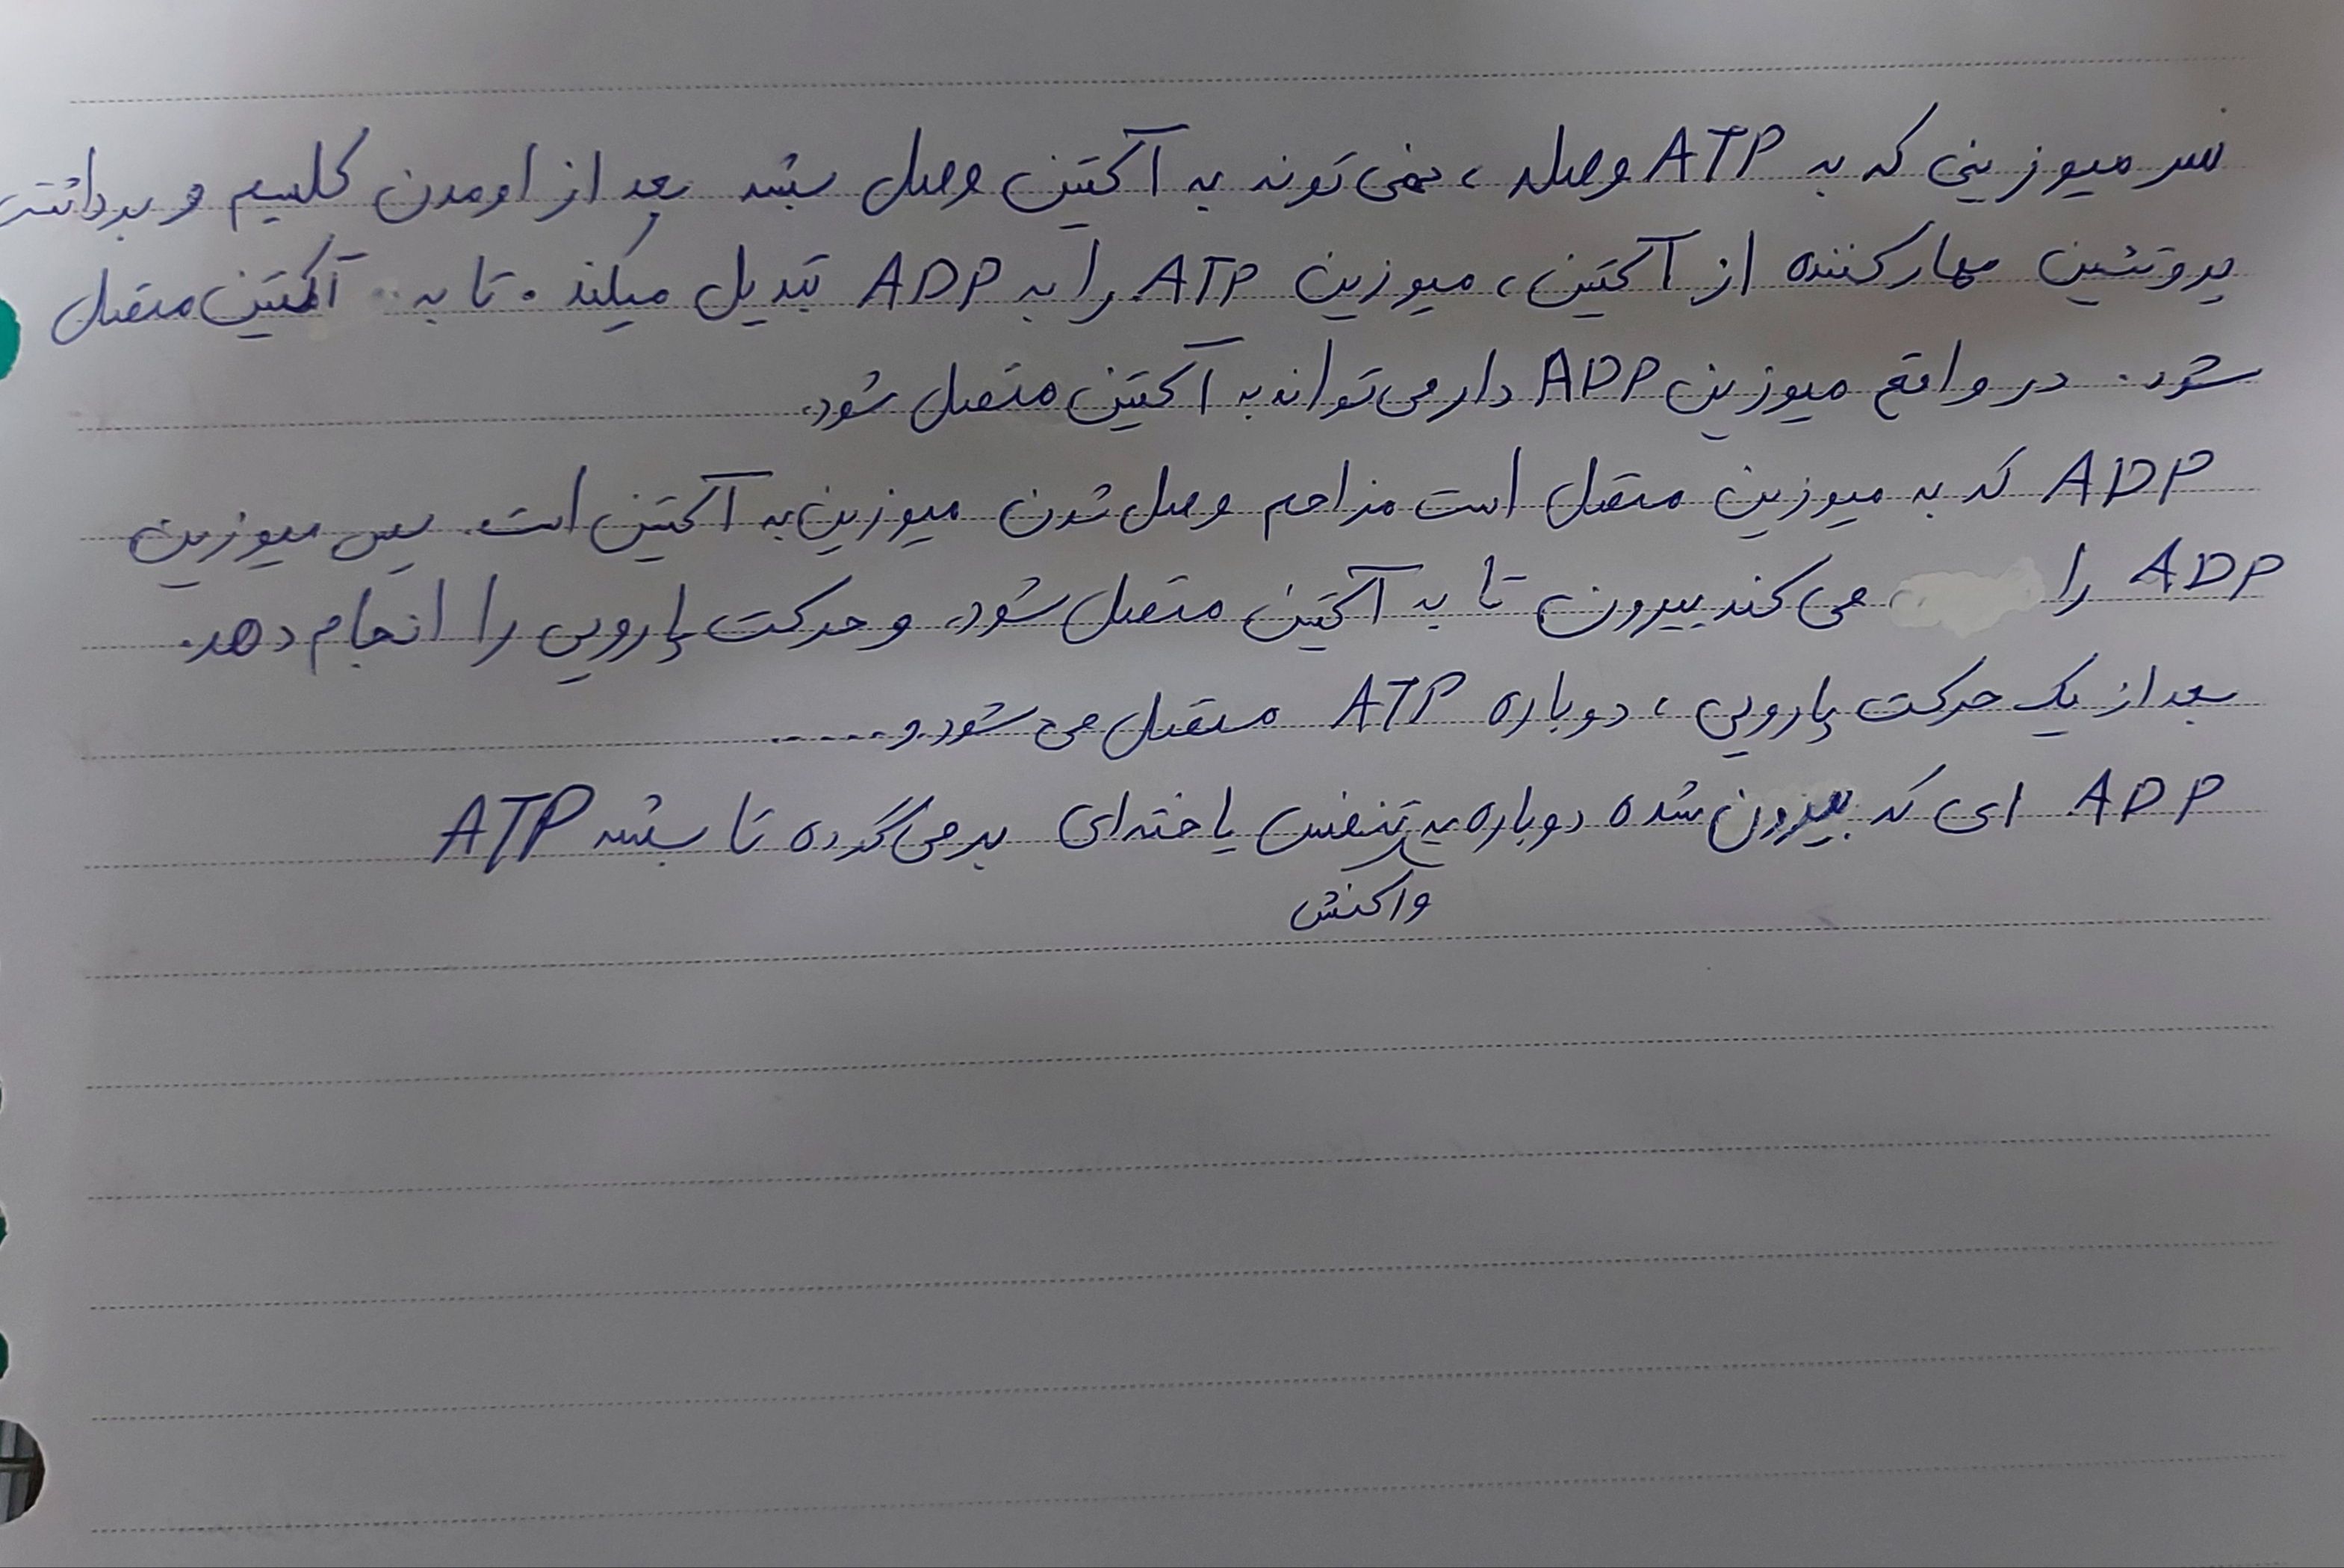 سر میوزینی که به ATP وصله، نمی‌تونه به آکتین وصل بشه بعد از اومدن کلسیم و برداشتن
پروتئین مهارکننده از آکتین، میوزین ATP را به ADP تبدیل میکند. تا به آکتین متصل
شود. در واقع میوزین ADP دار می‌تواند به آکتین متصل شود.
ADP که به میوزین متصل است مزاحم وصل شدن میوزین به آکتین است. پس میوزین
ADP را می‌کند بیرون تا به آکتین متصل شود. و حرکت پارویی را انجام دهد.
بعد از یک حرکت پارویی، دوباره ATP متصل می‌شود و.....
ADP ای که بیرون شده دوباره به تنفس یاخته‌ای برمی‌گرده تا بشه ATP
واکنش